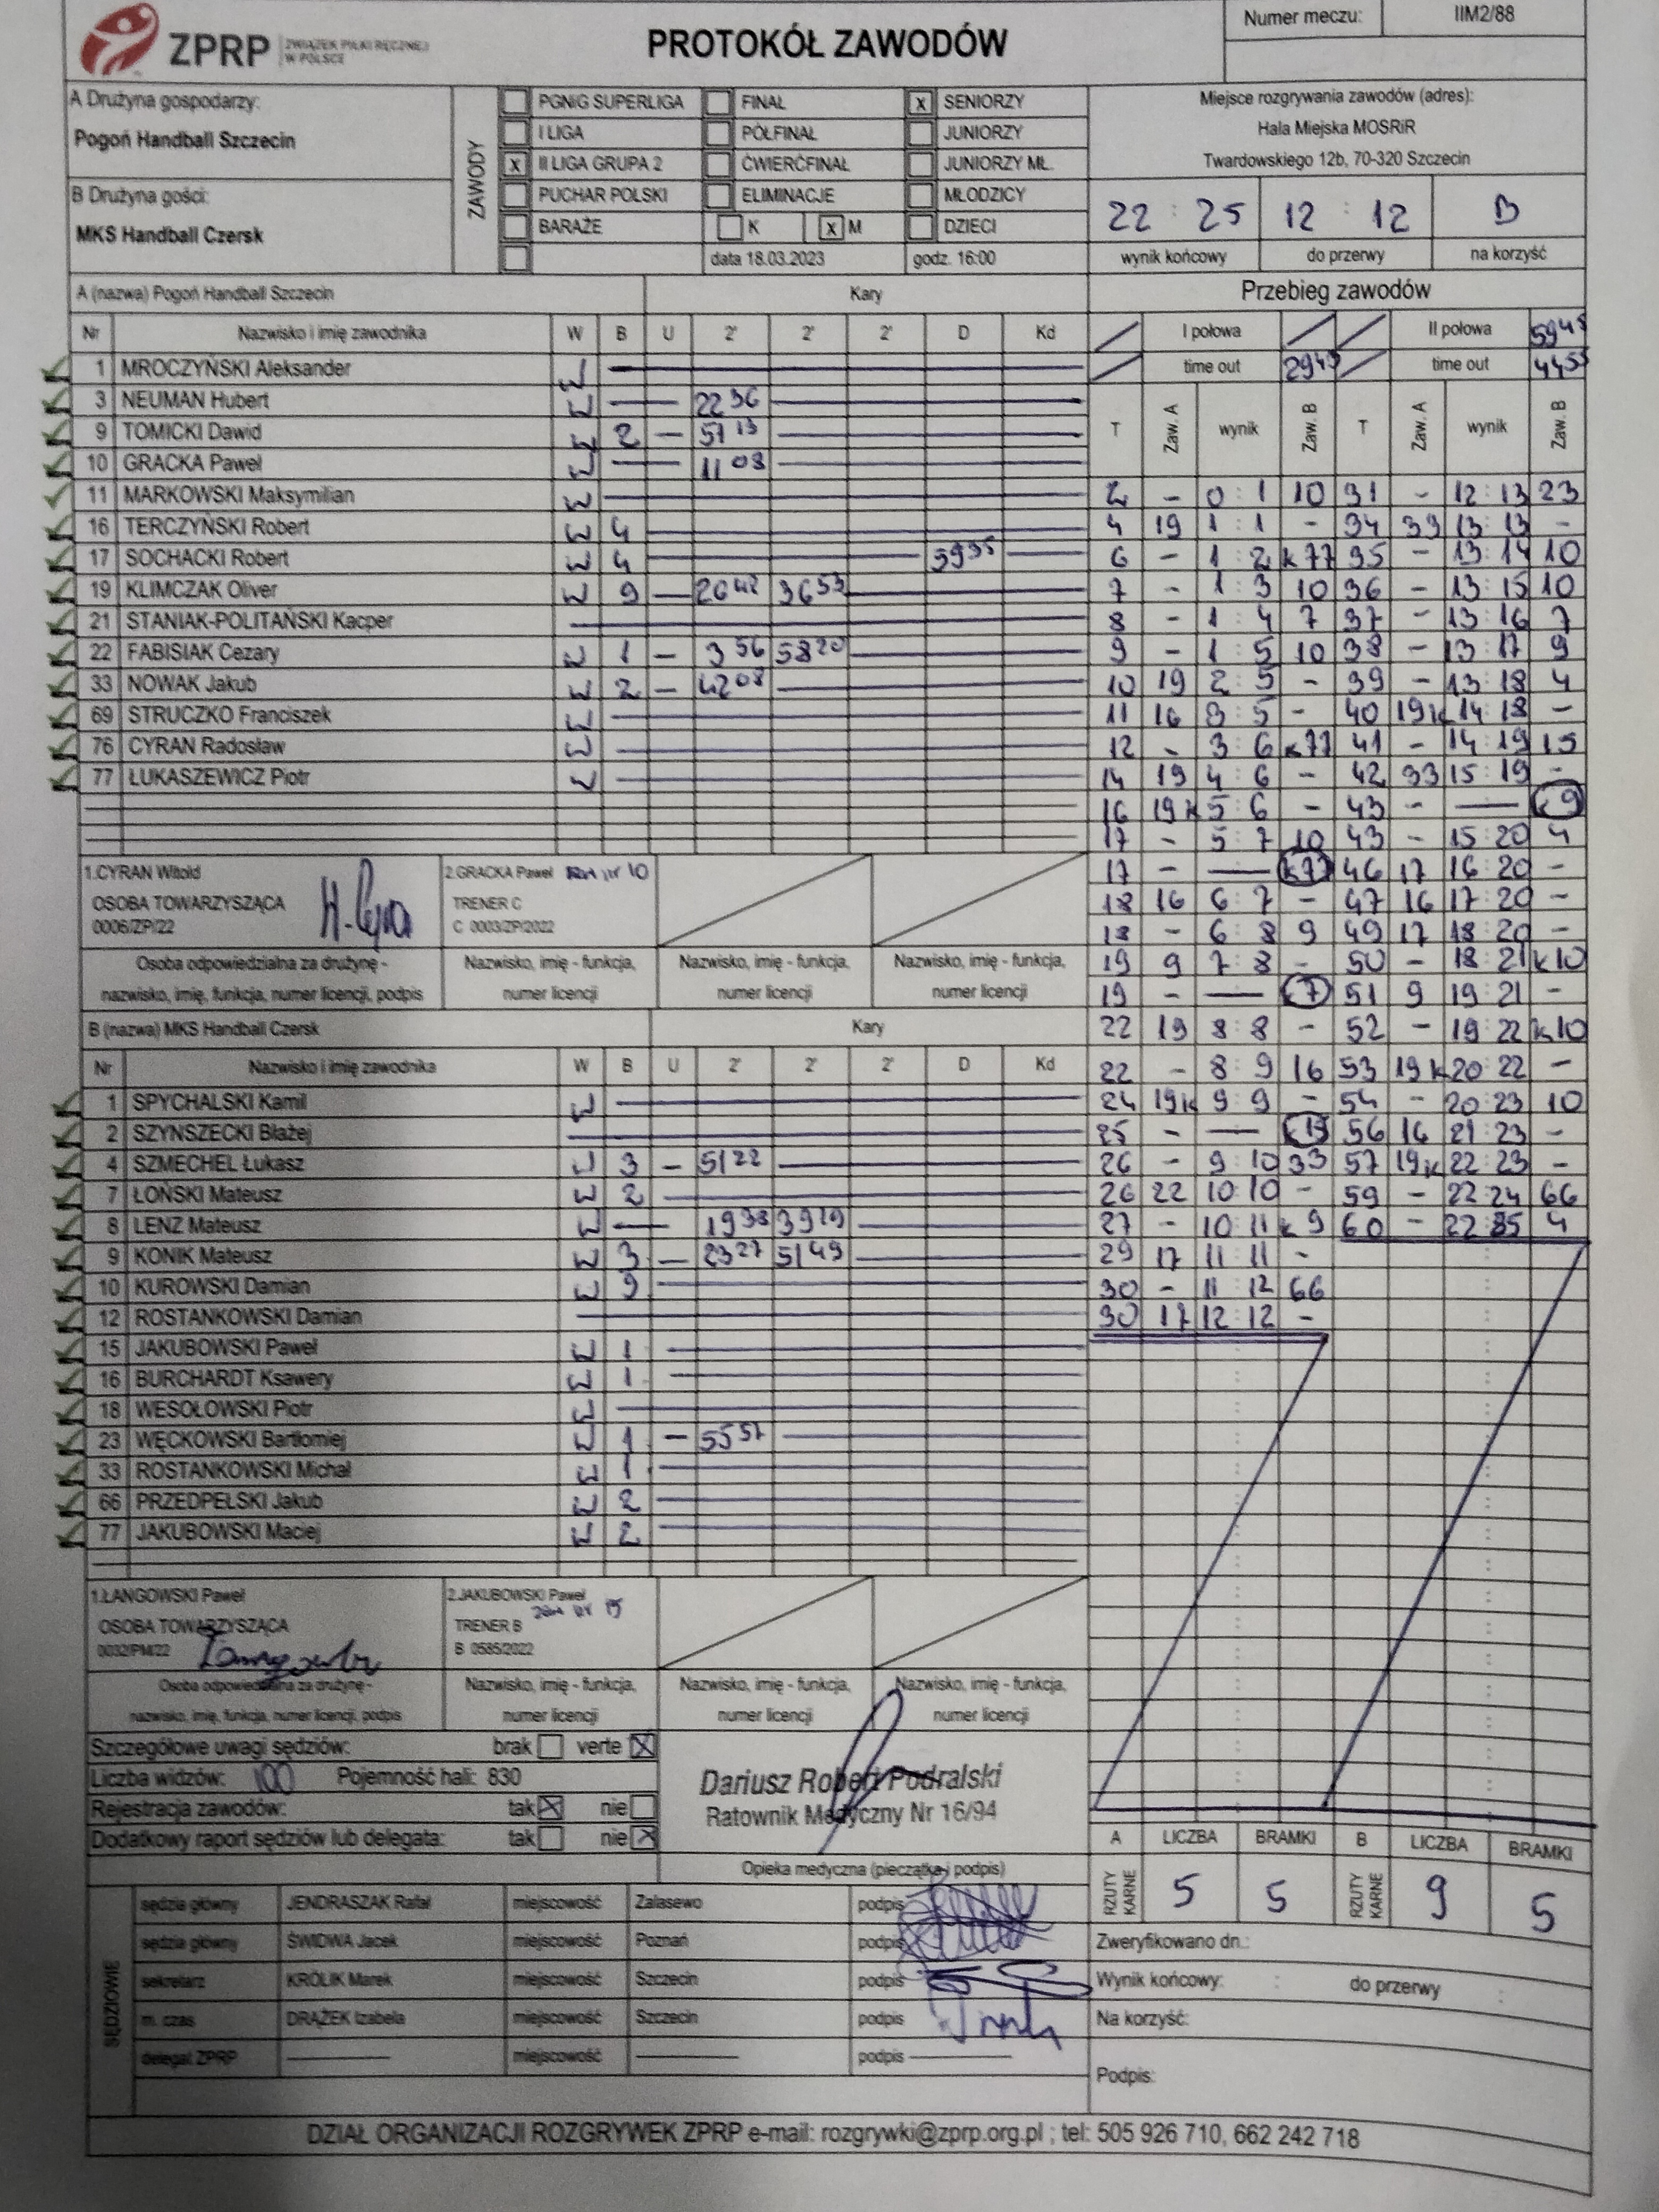 ZPRP ZWIĄZEK PIŁKI RĘCZNEJ W POLSCE
PROTOKÓŁ ZAWODÓW
Numer meczu: IIM2/88
A Drużyna gospodarzy:
Pogoń Handball Szczecin
B Drużyna gości:
MKS Handball Czersk
ZAWODY
PGNiG SUPERLIGA FINAŁ x SENIORZY
I LIGA PÓŁFINAŁ JUNIORZY
x II LIGA GRUPA 2 ĆWIERĆFINAŁ JUNIORZY MŁ.
PUCHAR POLSKI ELIMINACJE MŁODZICY
BARAŻE K x M DZIECI
data 18.03.2023 godz. 16:00
Miejsce rozgrywania zawodów (adres):
Hala Miejska MOSRiR
Twardowskiego 12b, 70-320 Szczecin
22 : 25 12 : 12 B
wynik końcowy do przerwy na korzyść
A (nazwa) Pogoń Handball Szczecin Kary
Nr Nazwisko i imię zawodnika W B U 2' 2' 2' D Kd
1 MROCZYŃSKI Aleksander W
3 NEUMAN Hubert W 22 36
9 TOMICKI Dawid W 2 51 13
10 GRACKA Paweł W 11 08
11 MARKOWSKI Maksymilian W
16 TERCZYŃSKI Robert W 4
17 SOCHACKI Robert W 4 59 35
19 KLIMCZAK Oliver W 9 26 42 36 53
21 STANIAK-POLITAŃSKI Kacper
22 FABISIAK Cezary W 1 3 56 58 20
33 NOWAK Jakub W 2 42 08
69 STRUCZKO Franciszek W
76 CYRAN Radosław W
77 ŁUKASZEWICZ Piotr W
1.CYRAN Witold
OSOBA TOWARZYSZĄCA
0006/ZP/22
2.GRACKA Paweł 10
TRENER C
C 0003/ZP/2022
Osoba odpowiedzialna za drużynę -
nazwisko, imię, funkcja, numer licencji, podpis
Nazwisko, imię - funkcja,
numer licencji
Nazwisko, imię - funkcja,
numer licencji
Nazwisko, imię - funkcja,
numer licencji
B (nazwa) MKS Handball Czersk Kary
Nr Nazwisko i imię zawodnika W B U 2' 2' 2' D Kd
1 SPYCHALSKI Kamil W
2 SZYNSZECKI Błażej
4 SZMECHEL Łukasz W 3 - 51 22
7 ŁOŃSKI Mateusz W 2
8 LENZ Mateusz W 19 38 39 19
9 KONIK Mateusz W 3 - 23 27 51 49
10 KUROWSKI Damian W 9
12 ROSTANKOWSKI Damian
15 JAKUBOWSKI Paweł W 1
16 BURCHARDT Ksawery W 1
18 WESOŁOWSKI Piotr W
23 WĘCKOWSKI Bartłomiej W 1 - 55 57
33 ROSTANKOWSKI Michał W 1
66 PRZEDPEŁSKI Jakub W 2
77 JAKUBOWSKI Maciej W 2
1.ŁANGOWSKI Paweł
OSOBA TOWARZYSZĄCA
0032/PM/22
2.JAKUBOWSKI Paweł
15
TRENER B
B 0585/2022
Osoba odpowiedzialna za drużynę -
nazwisko, imię, funkcja, numer licencji, podpis
Nazwisko, imię - funkcja,
numer licencji
Nazwisko, imię - funkcja,
numer licencji
Nazwisko, imię - funkcja,
numer licencji
Szczegółowe uwagi sędziów: brak verte X
Liczba widzów: 100 Pojemność hali: 830
Rejestracja zawodów: tak X nie
Dodatkowy raport sędziów lub delegata: tak nie X
Dariusz Robert Podralski
Ratownik Medyczny Nr 16/94
Opieka medyczna (pieczątka i podpis)
SĘDZIOWIE
sędzia główny JENDRASZAK Rafał miejscowość Zalasewo podpis
sędzia główny ŚWIDWA Jacek miejscowość Poznań podpis
sekretarz KRÓLIK Marek miejscowość Szczecin podpis
m. czas DRĄŻEK Izabela miejscowość Szczecin podpis
delegat ZPRP miejscowość podpis
Przebieg zawodów
I połowa II połowa 59 45
time out 29 49 time out 44 55
T Zaw. A wynik Zaw. B T Zaw. A wynik Zaw. B
2 - 0 : 1 10 31 - 12 : 13 23
4 19 1 : 1 - 34 33 13 : 13 -
6 - 1 : 2 k77 35 - 13 : 14 10
7 - 1 : 3 10 36 - 13 : 15 10
8 - 1 : 4 7 37 - 13 : 16 7
9 - 1 : 5 10 38 - 13 : 17 9
10 19 2 : 5 - 39 - 13 : 18 4
11 16 3 : 5 - 40 19k 14 : 18 -
12 - 3 : 6 k77 41 - 14 : 19 15
14 19 4 : 6 - 42 33 15 : 19 -
16 19k 5 : 6 - 43 - — k9
17 - 5 : 7 10 43 - 15 : 20 4
17 - — k77 46 17 16 : 20 -
18 16 6 : 7 - 47 16 17 : 20 -
18 - 6 : 8 9 49 17 18 : 20 -
19 9 7 : 8 - 50 - 18 : 21 k10
19 - — k7 51 9 19 : 21 -
22 19 8 : 8 - 52 - 19 : 22 k10
22 - 8 : 9 16 53 19k 20 : 22 -
24 19k 9 : 9 - 54 - 20 : 23 10
25 - — k15 56 16 21 : 23 -
26 - 9 : 10 33 57 19k 22 : 23 -
26 22 10 : 10 - 59 - 22 : 24 66
27 - 10 : 11 k9 60 - 22 : 25 4
29 17 11 : 11 -
30 - 11 : 12 66
30 17 12 : 12 -
A LICZBA BRAMKI B LICZBA BRAMKI
RZUTY KARNE 5 5 RZUTY KARNE 9 5
Zweryfikowano dn.:
Wynik końcowy: : do przerwy :
Na korzyść:
Podpis:
DZIAŁ ORGANIZACJI ROZGRYWEK ZPRP e-mail: rozgrywki@zprp.org.pl ; tel: 505 926 710, 662 242 718